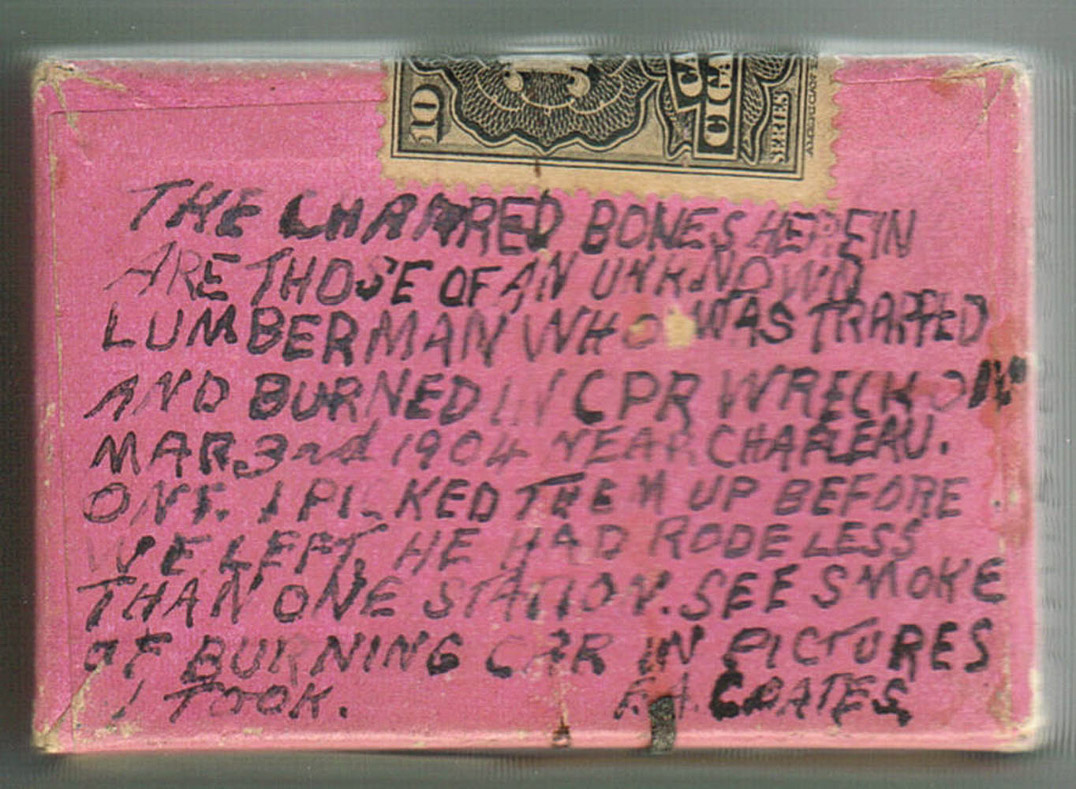 10
CIGA
SERIES
THE CHARRED BONES HEREIN
ARE THOSE OF AN UNKNOWN
LUMBERMAN WHO WAS TRAPPED
AND BURNED IN CPR WRECK ON
MAR 3rd 1904 NEAR CHAPLEAU.
ONT. I PICKED THEM UP BEFORE
WE LEFT. HE HAD RODE LESS
THAN ONE STATION. SEE SMOKE
OF BURNING CAR IN PICTURES
I TOOK. F.A. COATES.